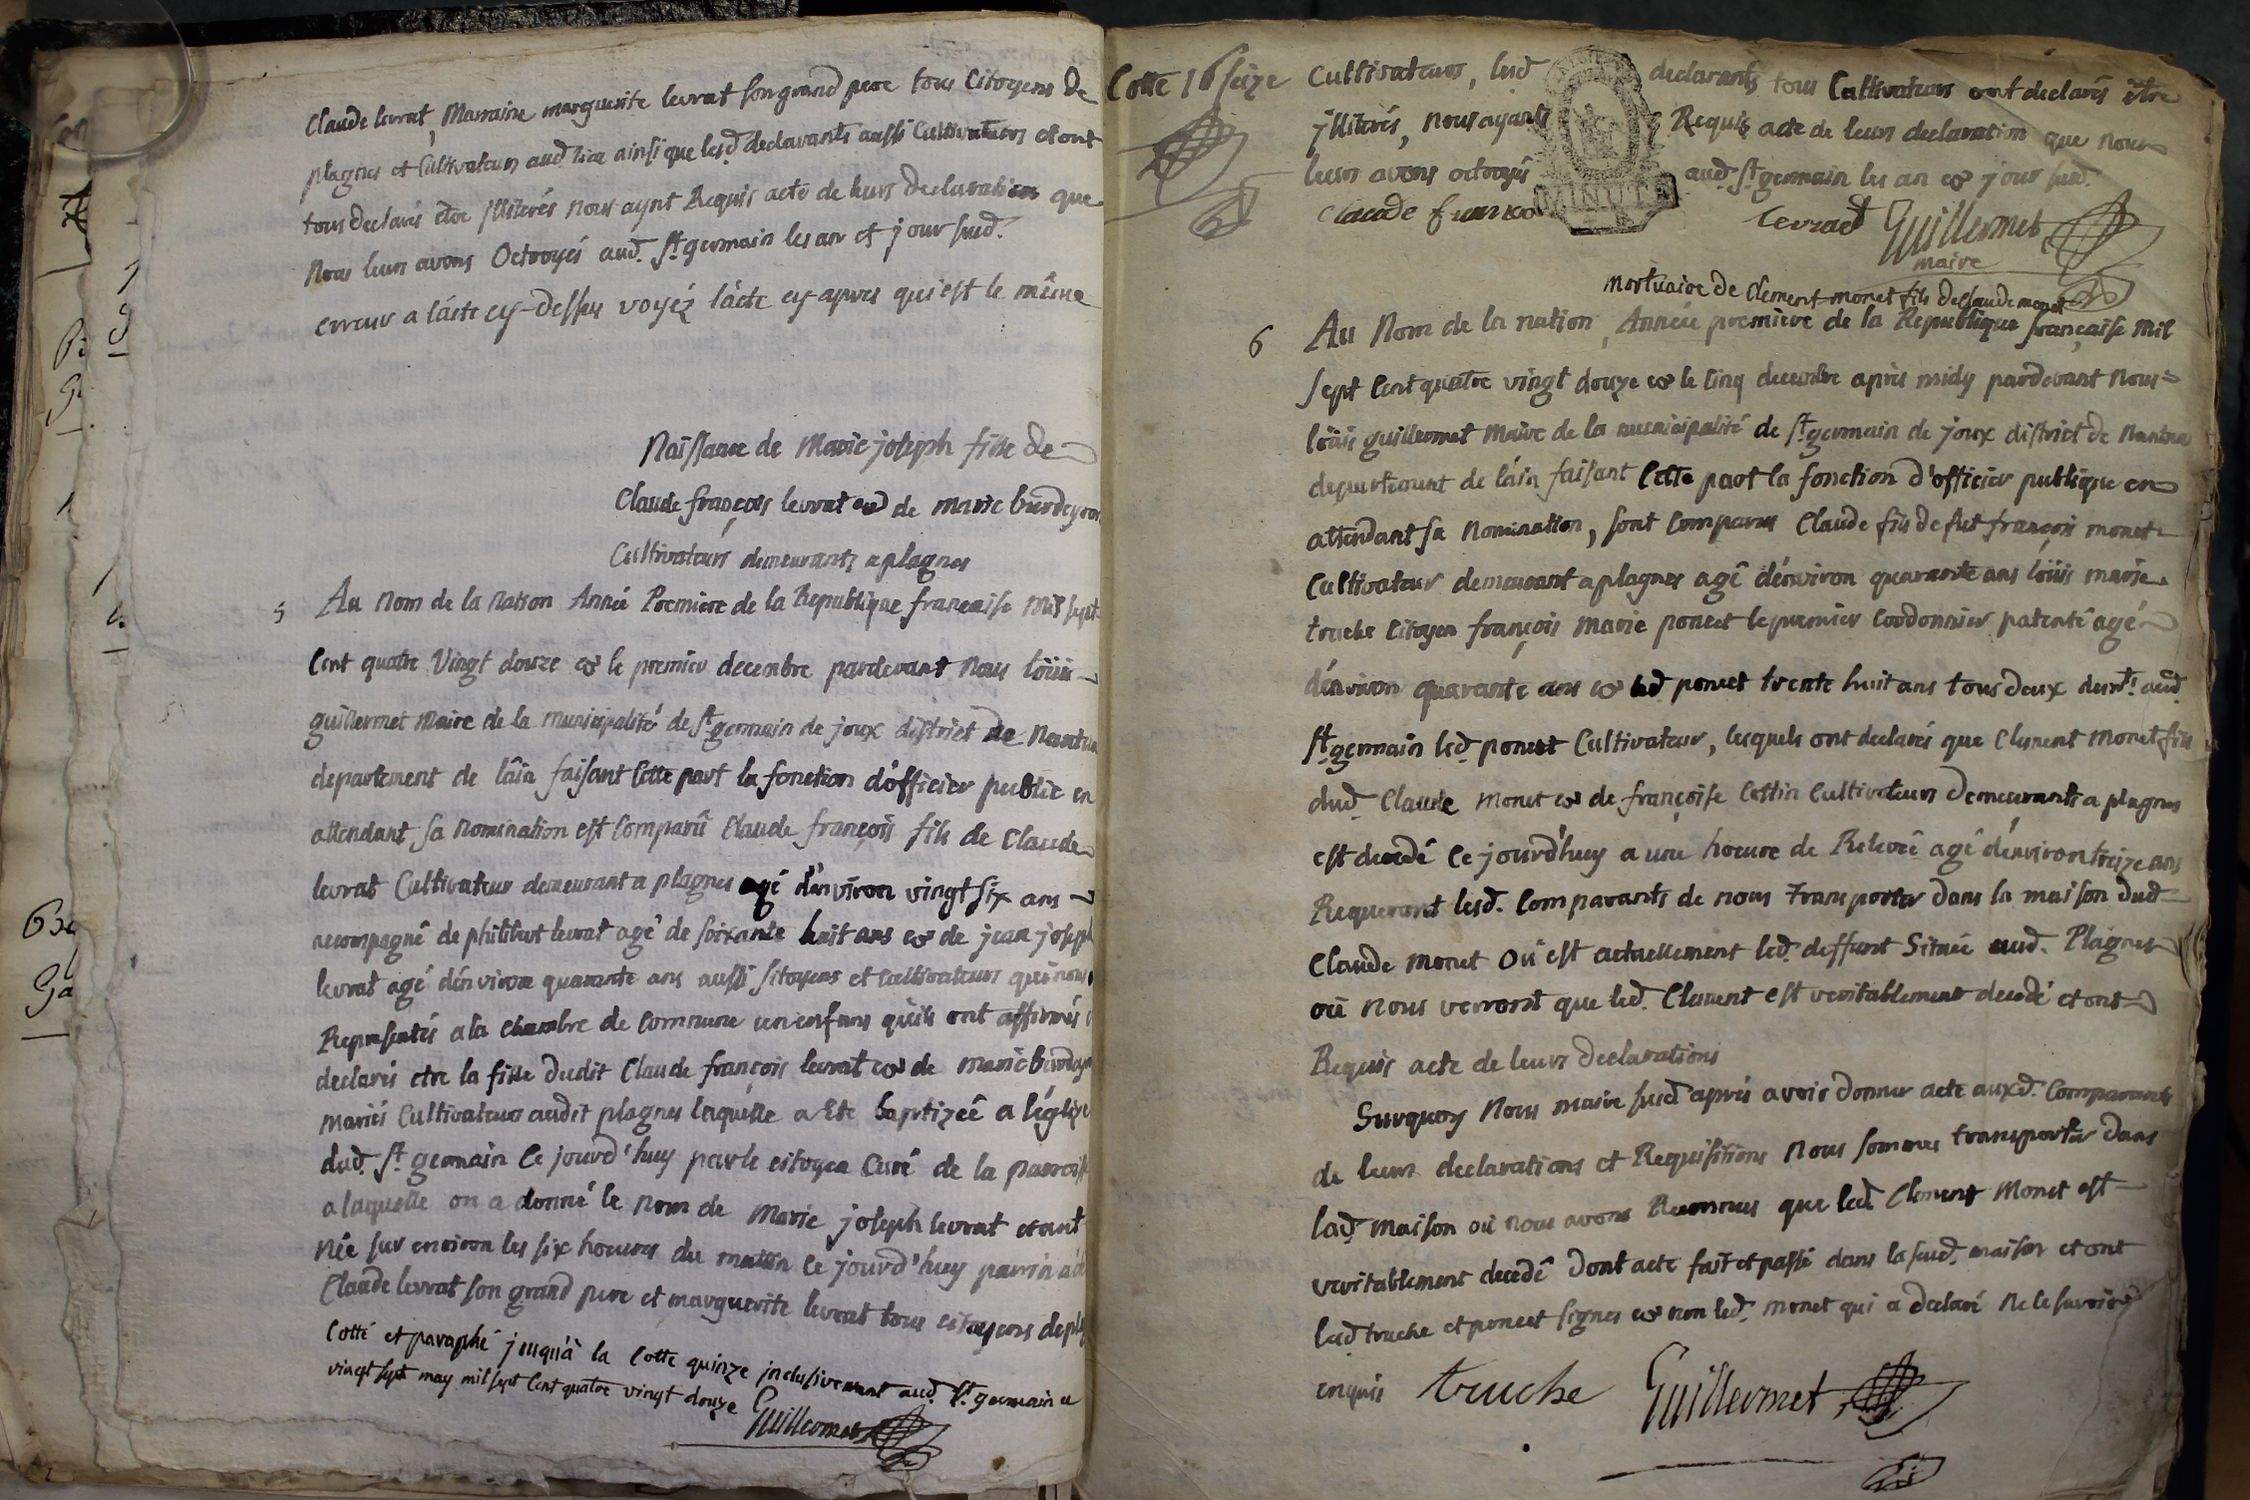 Claude levrat, Marraine marguerite levrat son grand pere tous Citoyens de
plagnes et Cultivateurs aud. lieu ainsi que lesd. declarants aussi Cultivateurs et ont
tous declarés être jlliterés nous aynt Requis acte de leurs declarations que
Nous leurs avons Octroyés aud. St. germain les an et jour sud.
erreur a l'acte cy-dessus voyéz l'acte cy apres qui est le même
Naissance de Marie joseph fille de
Claude françois levrat et de marie burdeyron
Cultivateurs demeurants a plagnes
5 Au nom de la Nation Année Premiere de la Republique française mil sept
Cent quatre Vingt douze et le premier decembre pardevant nous loüis
guillermet Maire de la municipalité de St. germain de joux district de Nantua
departement de l'ain faisant Cette part la fonction d'officier public en
attendant sa Nomination est Comparû Claude françois fils de Claude
levrat Cultivateur demeurant a plagnes agé d'environ vingt six ans
accompagné de philibert levrat agé de soixante huit ans et de jean joseph
levrat agé d'environ quarante ans aussi sitoyens et Cultivateurs qui nous
Representés a la Chambre de Commune un enfans qu'ils ont affirmés
declarés etre la fille dudit Claude françois levrat et de marie
mariés Cultivateurs audit plagnes laquelle a Ete baptizeé a l'églize
dud. St. germain Ce jourd'huy par le citoyen Curé de la parroisse
a laquelle on a donné le nom de Marie joseph levrat etant
Née sur environ les six heures du matin Ce jourd'huy parrin
Claude levrat son grand pere et marguerite levrat tous citoyens de
Cotté et paraphé jusqu'à la Cotte quinze jnclusivement aud. St. germain
vingt sept may mil sept Cent quatre vingt douze
Guillermet
Cotte 16 seize
Cultivateurs, lesd. declarants tous Cultivateurs ont declarés être
jlliterés, nous ayants Requis acte de leurs declaration que nous
leurs avons octroyés aud. St. germain les an et jour sud.
Claude levrat Guillermet
MINUTE
maire
Mortuaire de Clement monet fils de Claude monet
6 Au Nom de la nation, Année premiere de la Republique française mil
sept Cent quatre vingt douze et le Cinq decembre aprés midy pardevant nous
loüis guillermet Maire de la municipalité de St. germain de joux district de Nantua
departement de l'ain faisant Cette part la fonction d'officier publique en
attendant sa Nomination, sont Comparus Claude fils de fut françois monet
Cultivateur demeurant a plagnes agé d'environ quarante ans loüis marie
truche Citoyen françois marie poncet le premier Cordonnier patenté agé
d'environ quarante ans et led. poncet trente huit ans tous deux demts. aud.
St. germain led. poncet Cultivateur, lesquels ont declarés que Clement Monet fils
dud. Claude monet et de françoise Cottin Cultivateurs demeurants a plagnes
est decedé Ce jourd'huy a une heure de Relevé agé d'environ treize ans
Requerant lesd. Comparants de nous transporter dans la maison dud.
Claude monet où est actuellement led. deffunt Située aud. Plagnes
où nous verront que led. Clement est veritablement decedé et ont
Requis acte de leurs declarations
Surquoy Nous maire sud. aprés avoir donner acte auxd. Comparants
de leurs declarations et Requisitions nous sommes transporter dans
lad. maison où nous avons Reconnus que led. Clement Monet est
veritablement decedé dont acte fait et passé dans la sud. maison et ont
lesd. truche et poncet signes et non led. monet qui a declaré ne le savoir
enquis truche Guillermet